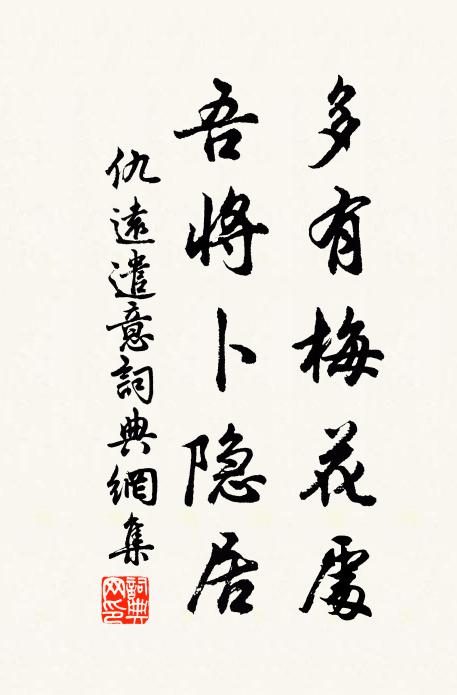 多有梅花處
吾將卜隐居
仇遠遣意詞典網集
詞典网印